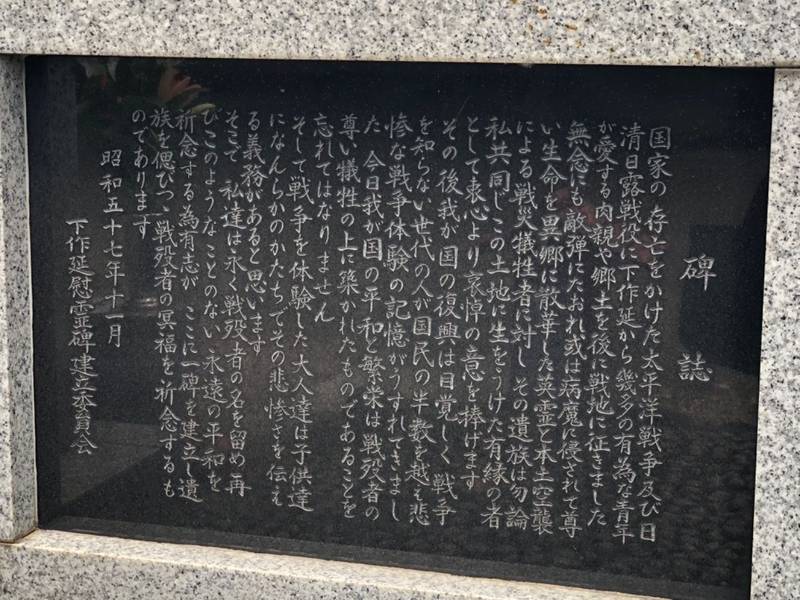 碑誌
国家の存亡をかけた太平洋戦争及び日
清日露戦役に下作延から幾多の有為な青年
が愛する肉親や郷土を後に戦地に征きました
無念にも敵弾にたおれ或は病魔に侵されて尊
い生命を異郷に散華した英霊と本土空襲
による戦災犠牲者に対し その遺族は勿論
私共同じこの土地に生をうけた有縁の者
として衷心より哀悼の意を捧げます
その後我が国の復興は目覚しく 戦争
を知らない世代の人が国民の半数を越え悲
惨な戦争体験の記憶がうすれてきまし
た 今日我が国の平和と繁栄は戦歿者の
尊い犠牲の上に築かれたものであることを
忘れてはなりません
そして戦争を体験した大人達は子供達
になんらかのかたちでその悲惨さを伝え
る義務があると思います
そこで 私達は永く戦歿者の名を留め 再
びこのようなことのない 永遠の平和を
祈念する為有志が ここに一碑を建立し遺
族を偲びつつ戦歿者の冥福を祈念するも
のであります
昭和五十七年十一月
下作延慰霊碑建立委員会